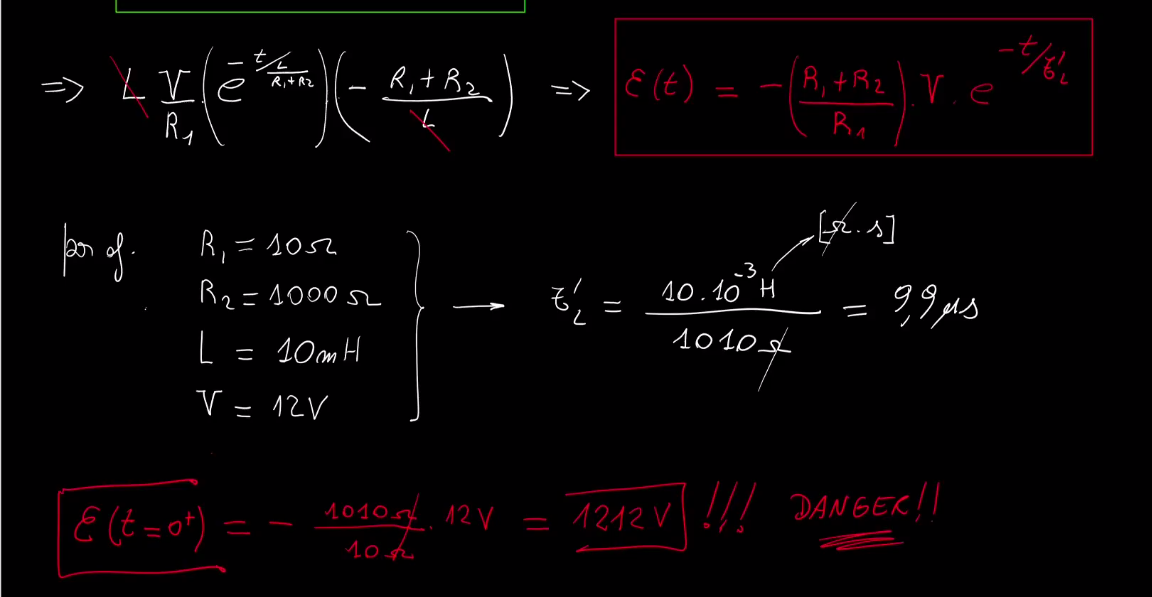 => L V/R₁ (e^(-t/(L/(R₁+R₂)))) (- (R₁+R₂)/L) => Ɛ(t) = -((R₁+R₂)/R₁) . V . e^(-t/τ'_L)
R₁ = 10Ω
R₂ = 1000Ω
L = 10mH
V = 12V
→ τ'_L = 10.10⁻³H / 1010Ω = 9,9μs
[Ω.s]
Ɛ(t=0⁺) = - 1010Ω/10Ω . 12V = 1212V !!! DANGER!!